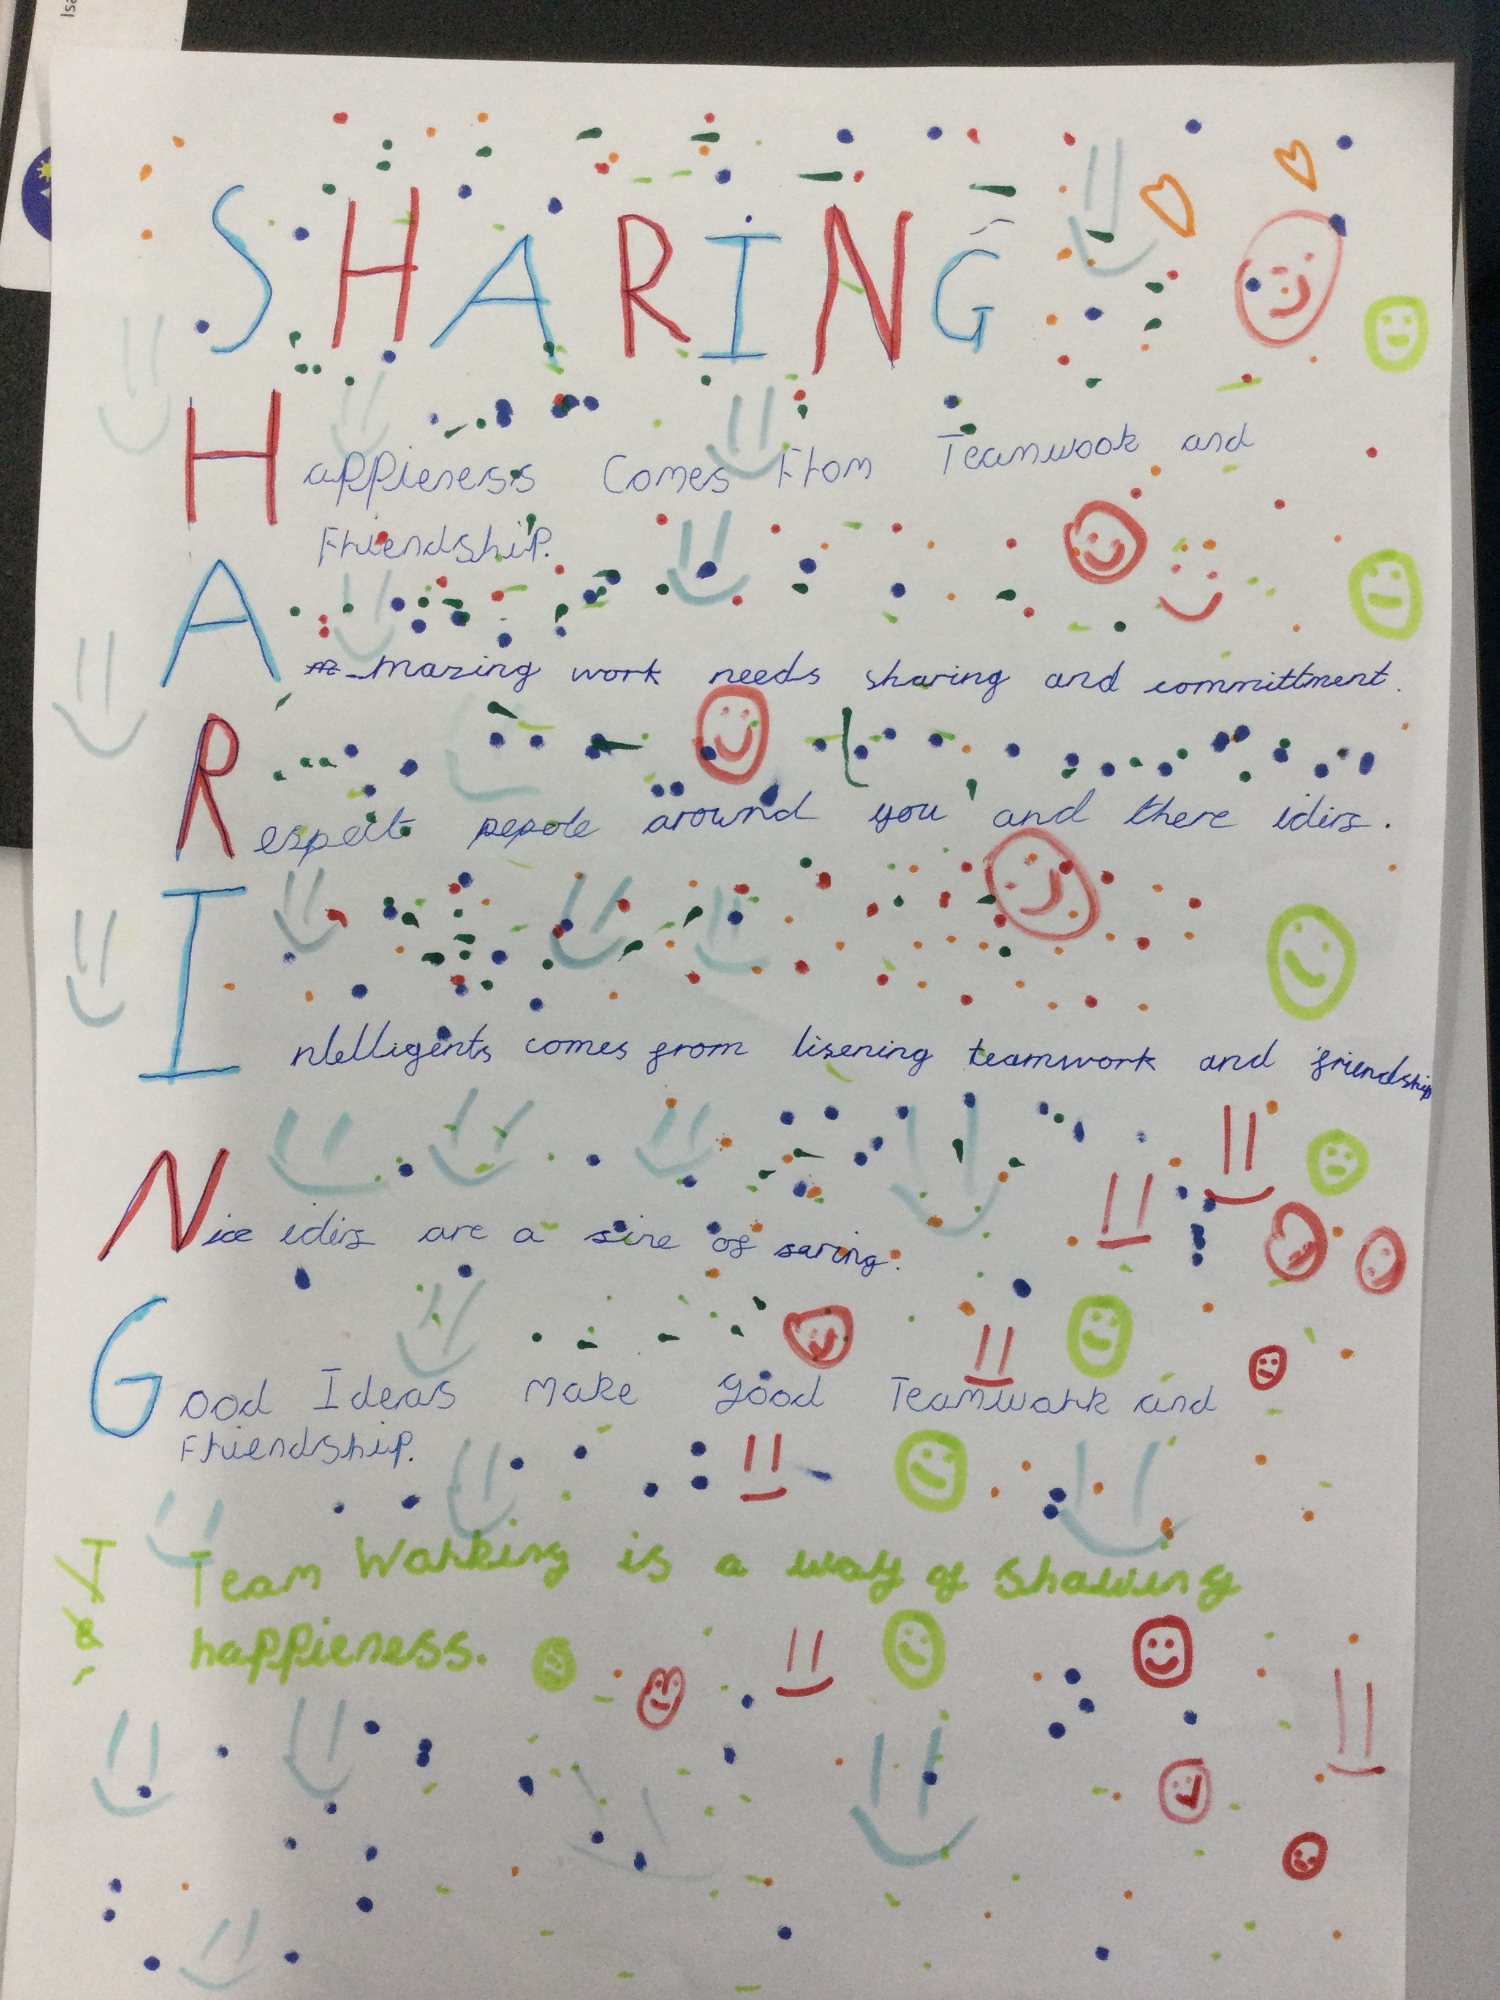 Isa
SHARING
Happieness Comes From Teamwook and
Friendship.
Amazing work needs sharing and committment.
Respect pepole around you and there idirs.
Intelligents comes from lisening teamwork and friendship
Nice idirs are a sire of saring.
Good Ideas make good Teamwork and
Friendship.
Team Working is a way of Shawing
happieness.